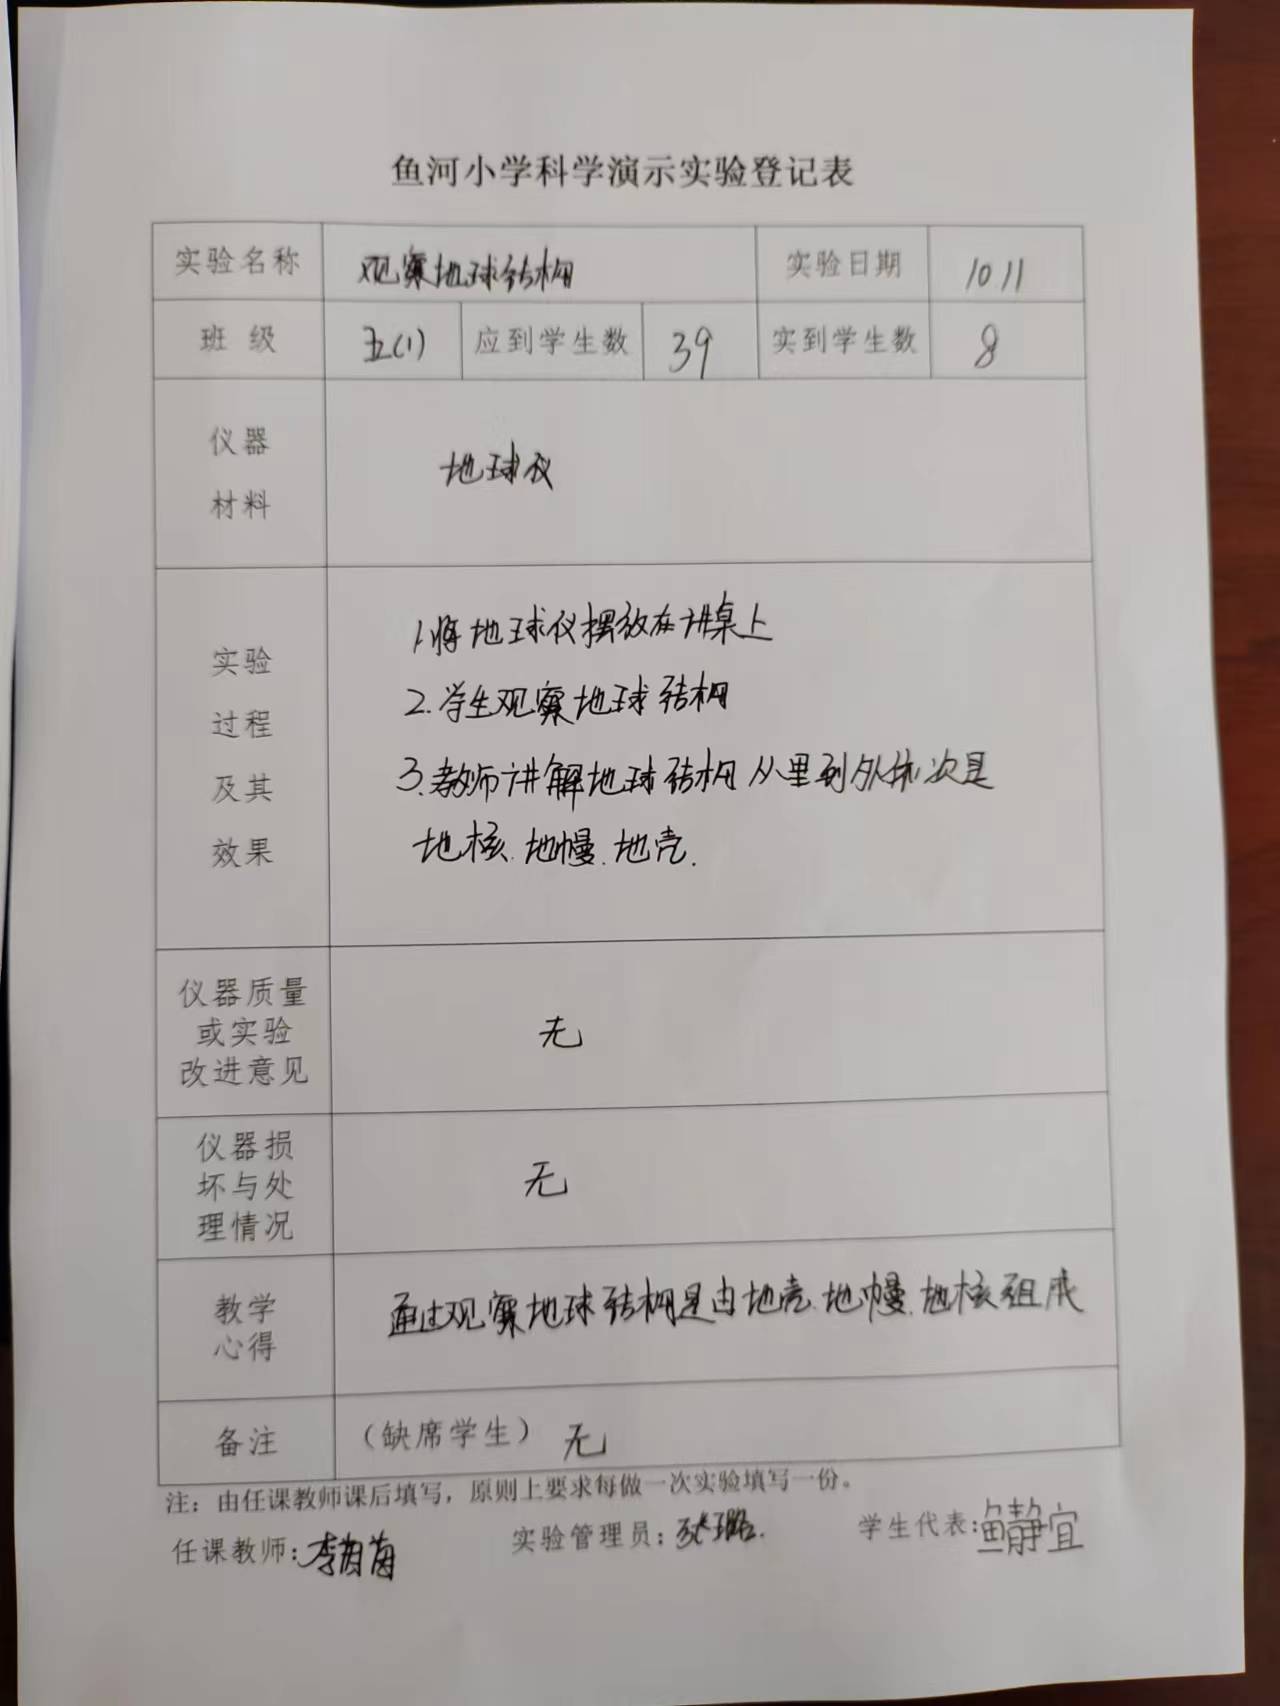 鱼河小学科学演示实验登记表
实验名称 观察地球结构 实验日期 10 11
班 级 五(1) 应到学生数 39 实到学生数 8
仪器
材料
地球仪
实验
过程
及其
效果
1.将地球仪摆放在讲桌上
2.学生观察地球结构
3.教师讲解地球结构从里到外依次是
地核、地幔、地壳.
仪器质量
或实验
改进意见
无
仪器损
坏与处
理情况
无
教学
心得
通过观察地球结构是由地壳、地幔、地核组成
备注 （缺席学生） 无
注：由任课教师课后填写，原则上要求每做一次实验填写一份。
任课教师: 实验管理员: 学生代表:鱼静宜